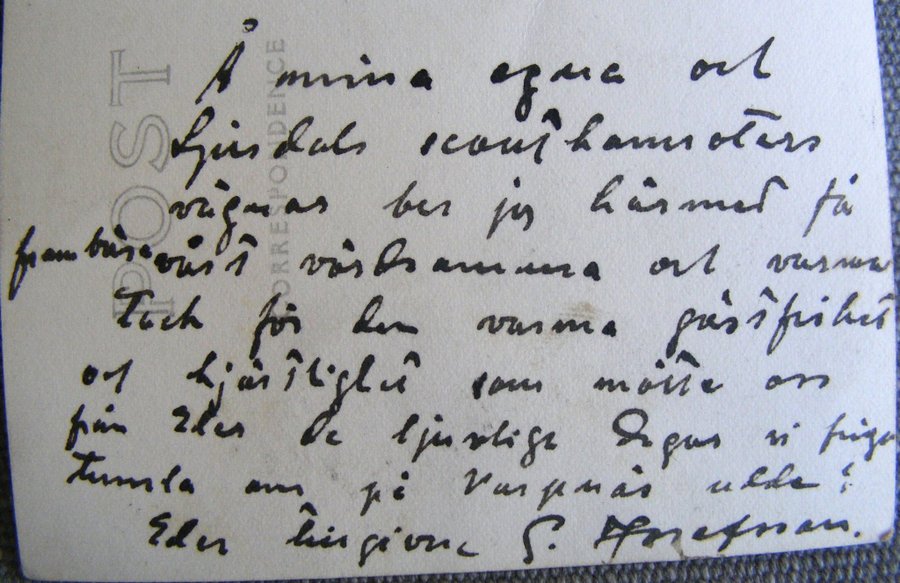 Å mina egna och
Ljusdals scoutkamraters
vägnar ber jag härmed få
frambära vårt vördsamma och varma
Tack för den varma gästfrihet
och hjärtlighet som mötte oss
från Eder de ljuvliga dagar vi fingo
tumla om på Varpnäs udde!
Eder tillgivne G. Josefsson.
POST
CORRESPONDENCE